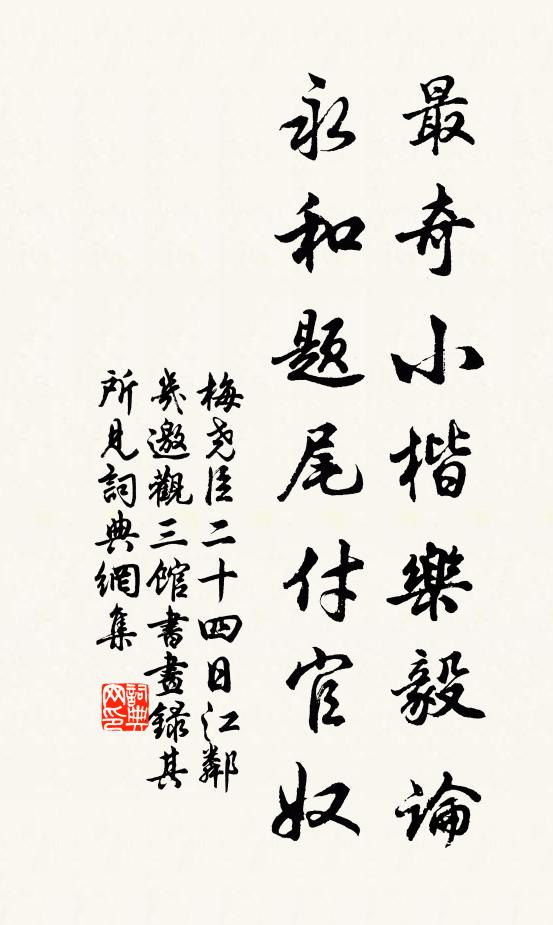 最奇小楷樂毅論
永和题尾付官奴
梅尧臣二十四日江鄰
幾邀觀三館書畫録其
所見詞典網集
詞典
网印